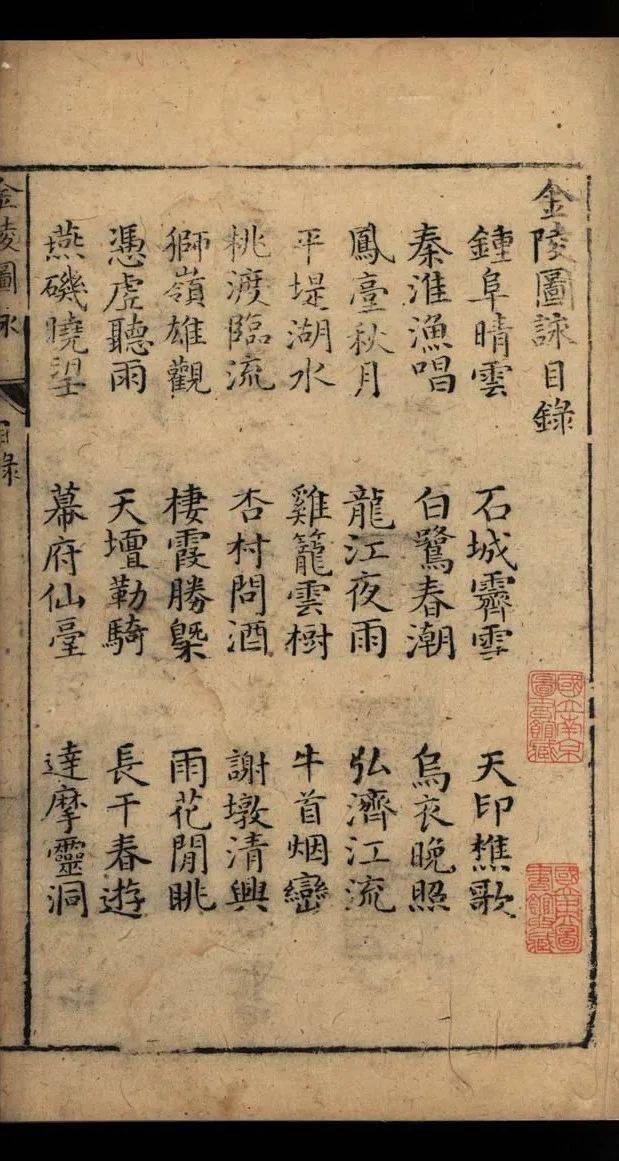 金陵圖詠目錄
鍾阜晴雲 石城霽雪 天印樵歌
秦淮漁唱 白鷺春潮 烏衣晚照
鳳臺秋月 龍江夜雨 弘濟江流
平堤湖水 雞籠雲樹 牛首烟巒
桃渡臨流 杏村問酒 謝墩清興
獅嶺雄觀 棲霞勝槩 雨花閒眺
憑虛聽雨 天壇勒騎 長干春遊
燕磯曉望 幕府仙臺 達摩靈洞
金陵圖詠 目錄
國立南京圖書館藏